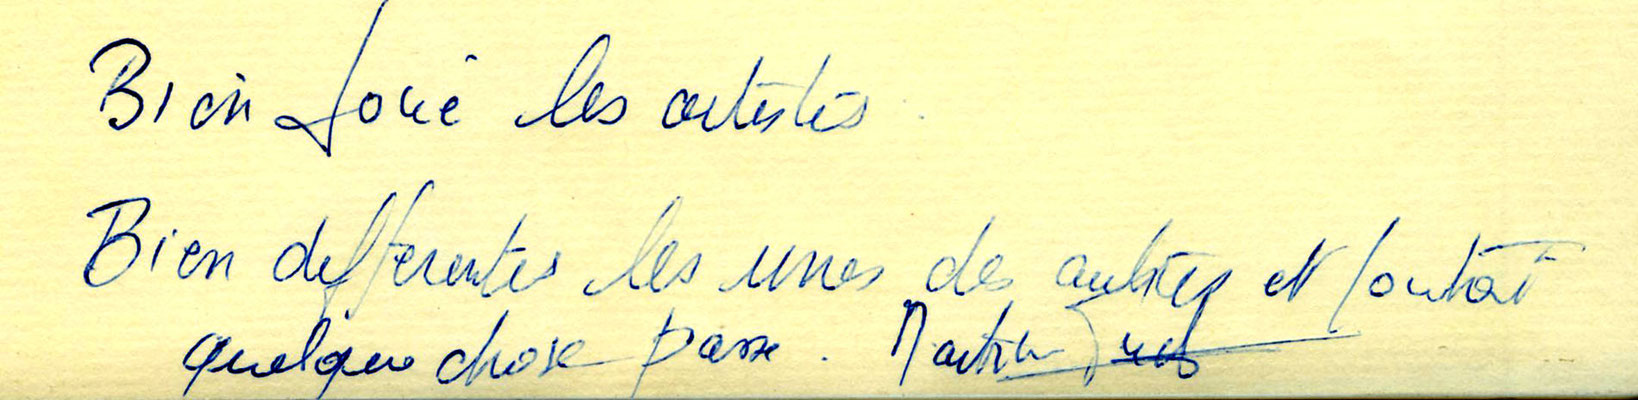 Bien joué les artistes.
Bien differentes les unes des autres et pourtant
quelque chose passe. Martin